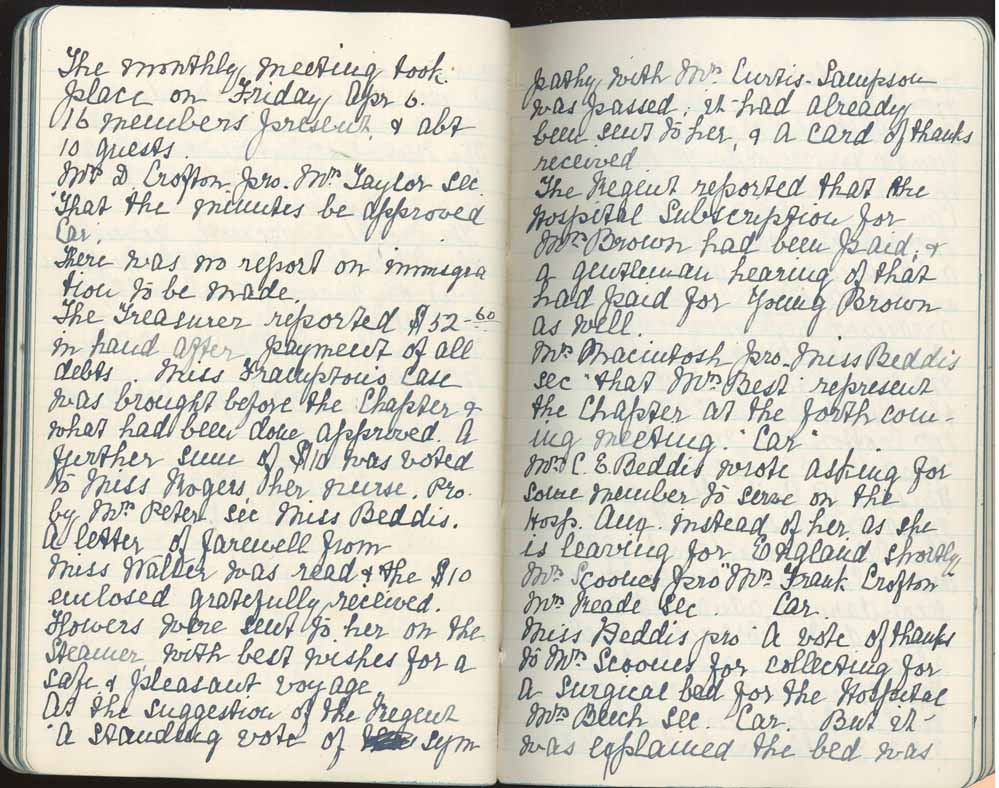 The monthly meeting took
place on Friday, Apr 6.
16 members present, & abt
10 guests.
Mrs D. Crofton. pro. Mrs Taylor sec.
That the minutes be approved
Car.
There was no report on immigra
tion to be made.
The Treasurer reported $52-60
in hand after payment of all
debts. Miss Frampton's case
was brought before the Chapter &
what had been done approved. A
further sum of $10 was voted
to Miss Rogers, her nurse. Pro.
by Mrs Peter. sec Miss Beddis.
A letter of farewell from
Miss Walter was read & the $10
enclosed gratefully received.
Flowers were sent to her on the
Steamer, with best wishes for a
safe & pleasant voyage
At the suggestion of the Regent
a standing vote of sym
pathy with Mrs Curtis-Sampson
was passed; it had already
been sent to her, & a card of thanks
received
The Regent reported that the
Hospital Subscription for
Mrs Brown had been paid, &
a gentleman hearing of that
had paid for Young Brown
as well.
Mrs Macintosh pro. Miss Beddis
sec "that Mrs Best" represent
the Chapter at the forth com-
ing meeting." Car"
Mrs C. E. Beddis wrote asking for
some member to serve on the
Hosp. Aux. instead of her as she
is leaving for England shortly
Mrs Scoones pro "Mrs Frank Crofton"
Mrs Reade sec Car.
Miss Beddis pro "A vote of thanks
to Mrs Scoones for collecting for
a surgical bed for the Hospital
Mrs Beech sec Car. But it
was explained the bed was